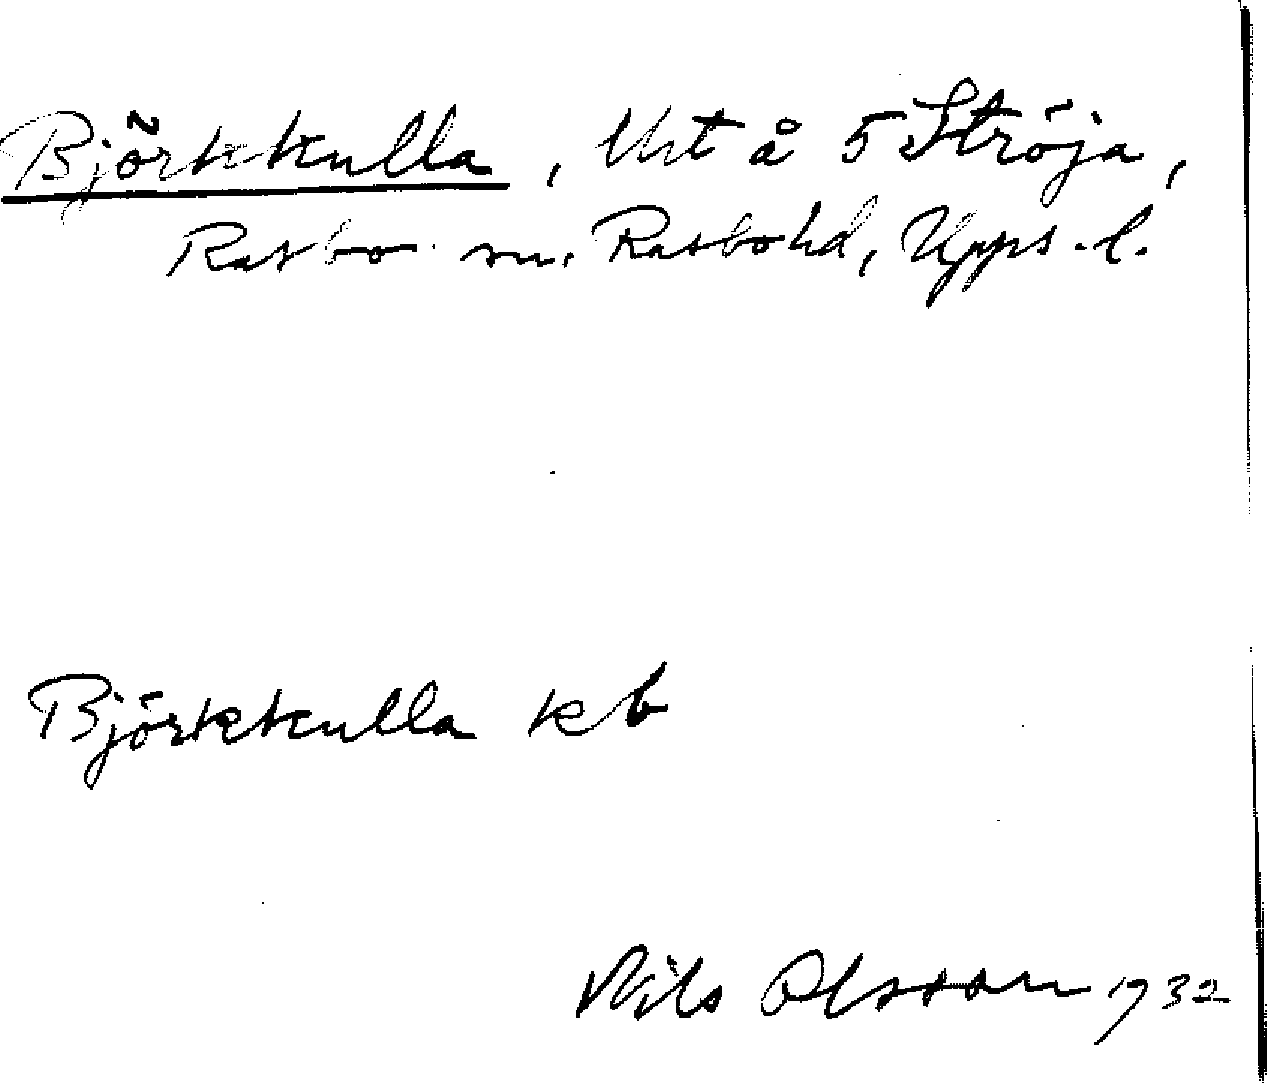 Björkkulla, Urt å 5 Ströja,
Rasbo sn. Rasbo hd, Upps. l.
Björkkulla kb
Nils Olsson 1932